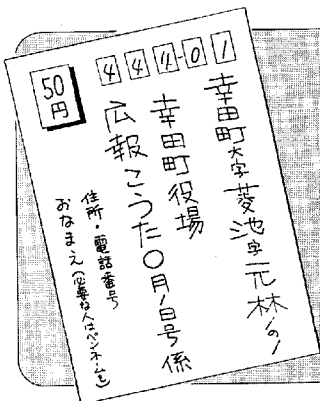 50円
444-01
幸田町大字菱池字元林1の1
幸田町役場
広報こうた○月1日号係
住所・電話番号
おなまえ(必要な人はペンネームも)